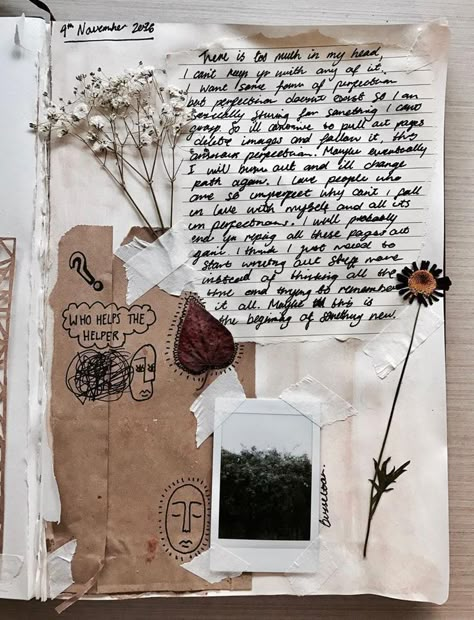 9th November 2036
There is too much in my head
I can't keep up with any of it.
I want some form of perfection
but perfection doesn't exist so I am
basically striving for something I can't
grasp. So ill continue to pull out pages
delete images and follow it, this
perfection. Maybe eventually
I will burn out and ill change
path again. I love people who
are so imperfect why can't I fall
in love with myself and all its
imperfections. I will probably
end up ripping all these pages out
again. I think I just need to
start writing out stuff more
instead of thinking all the
time and trying to remember
it all. Maybe this is
the beginning of something new.
?
WHO HELPS THE
HELPER